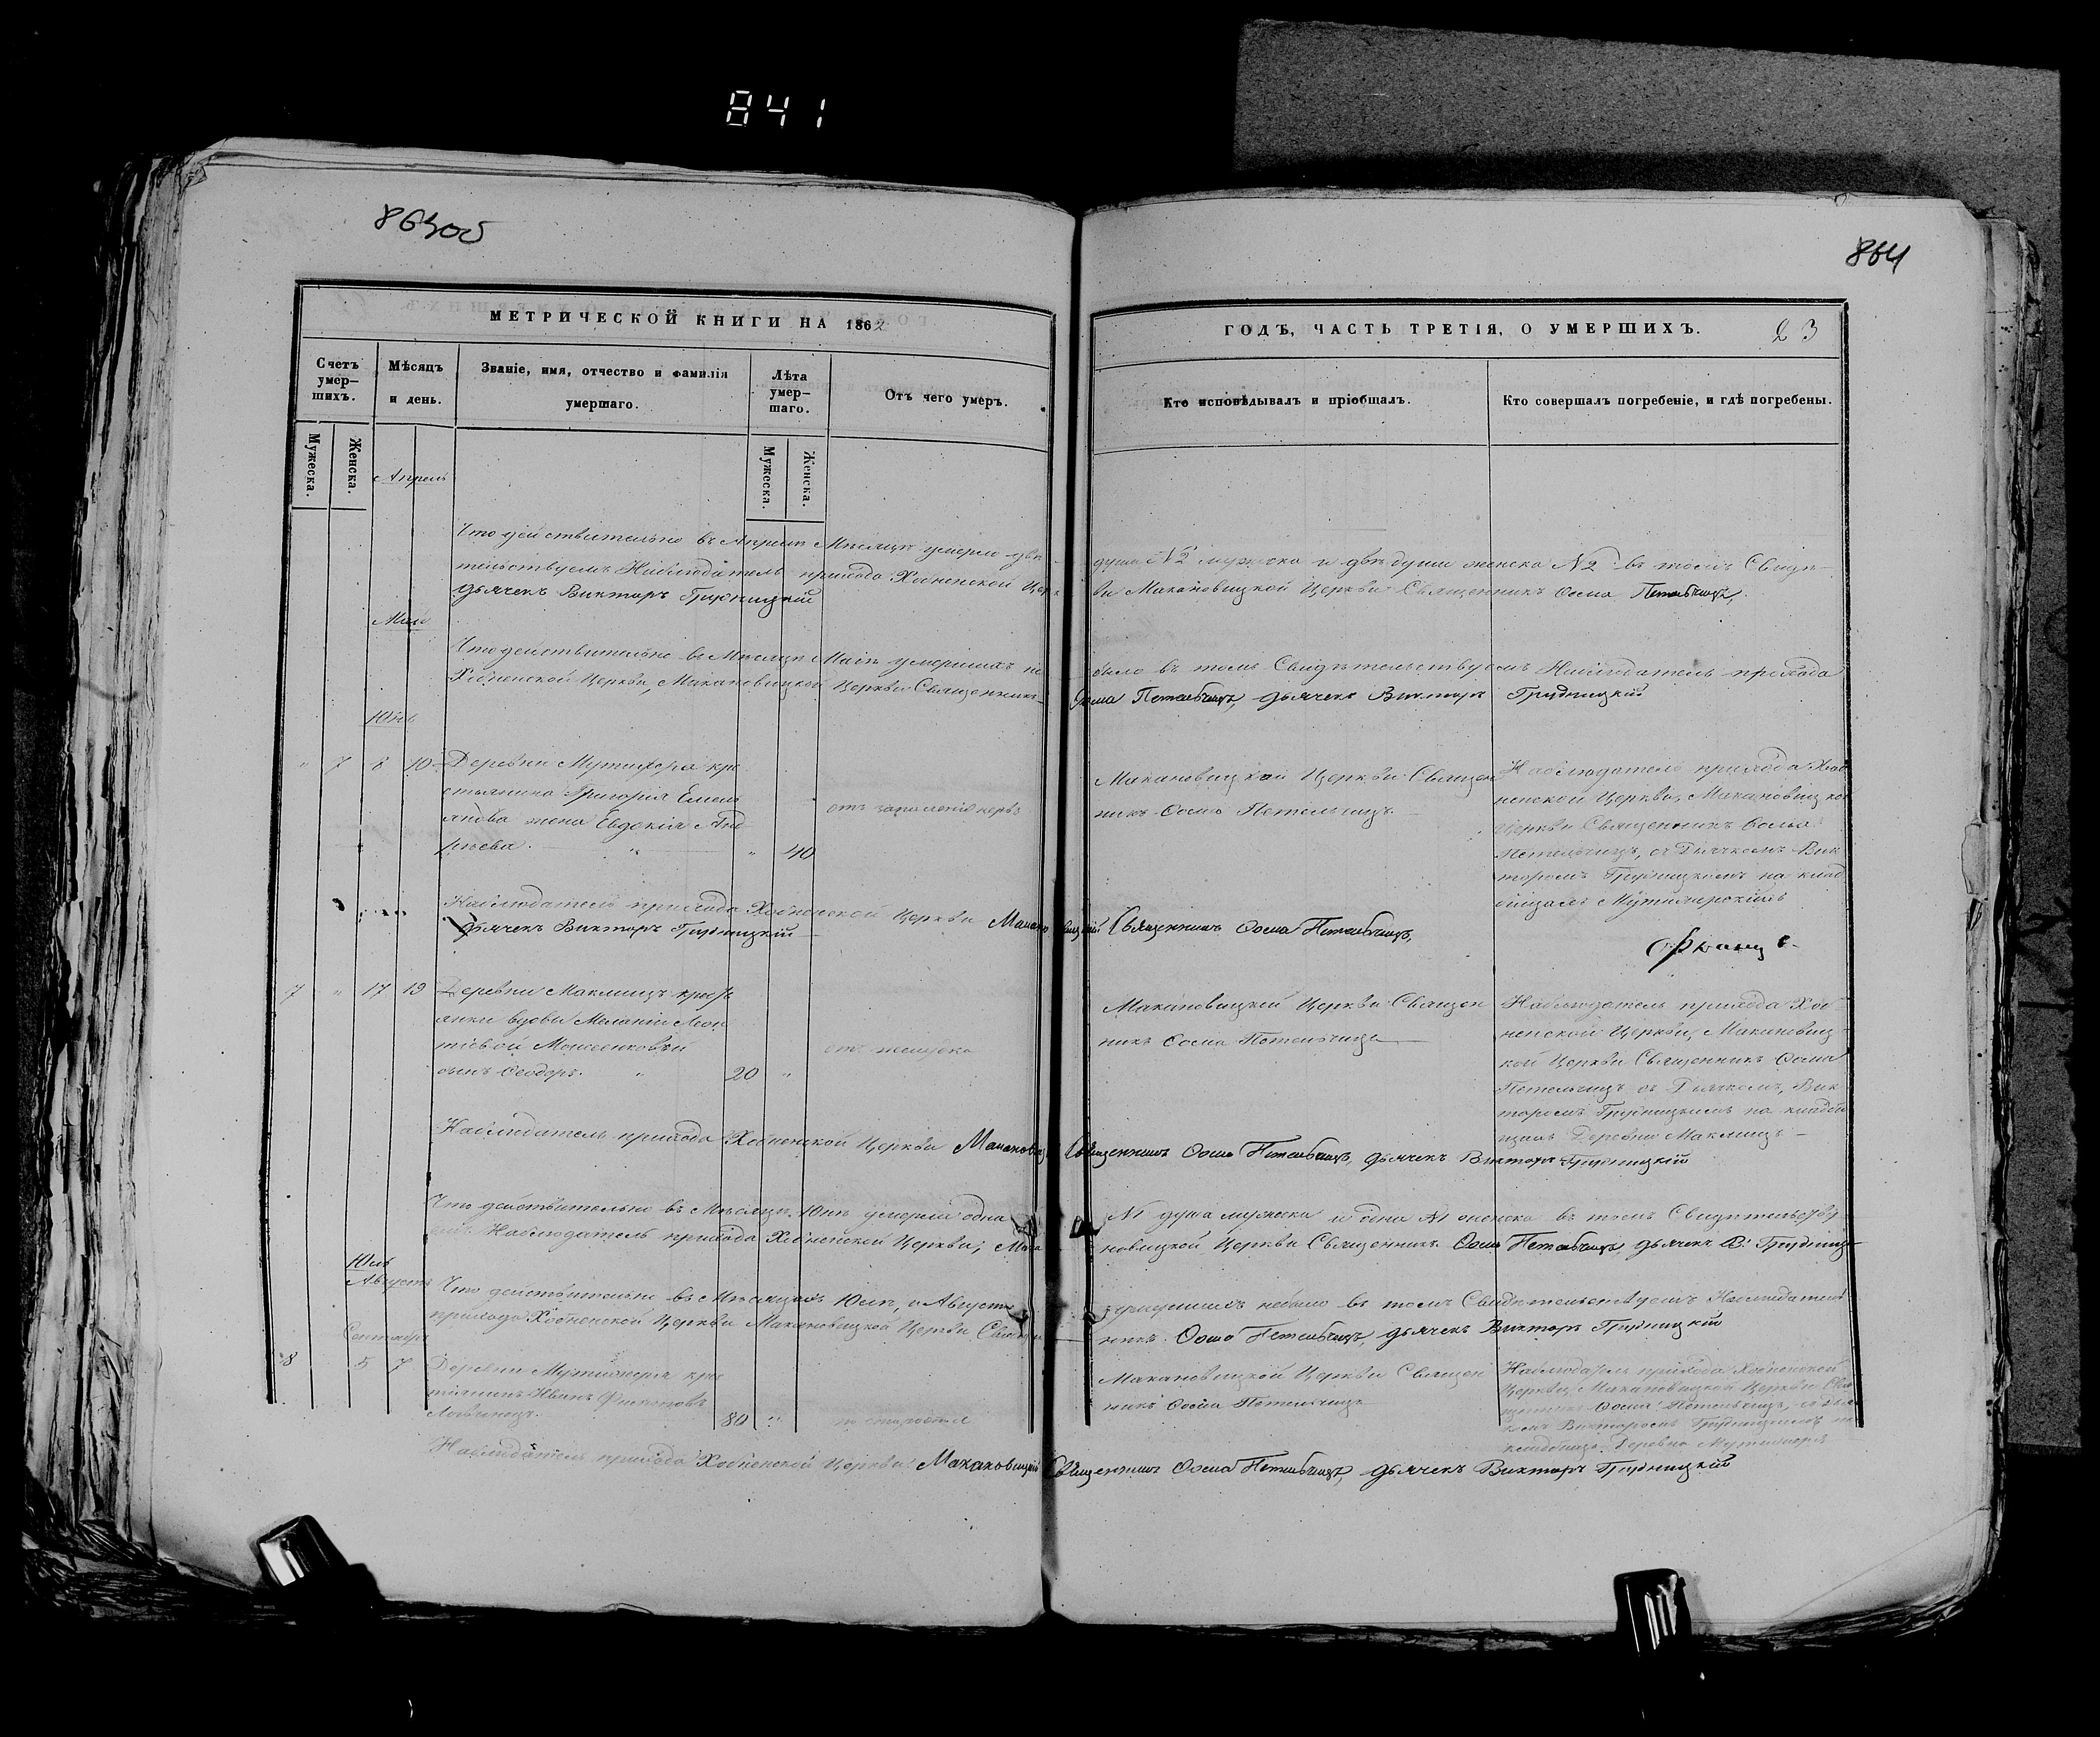 841
863об
864
МЕТРИЧЕСКОЙ КНИГИ НА 1862
ГОДЪ, ЧАСТЬ ТРЕТІЯ, О УМЕРШИХЪ. 23
Счетъ умер-
шихъ.
Мѣсяцъ
и день.
Званіе, имя, отчество и фамилія
умершаго.
Лѣта
умер-
шаго.
Отъ чего умеръ.
Кто исповѣдывалъ и пріобщалъ.
Кто совершалъ погребеніе, и гдѣ погребены.
Мужеска.
Женска.
Мужеска.
Женска.
Апрель
Что действительно въ Апреле Месяце умерло две
душе №2 мужеска и две души женска №2 въ томъ Свиде-
тельствуемъ Наблюдатель прихода Хобненской Церк
ви Макановицкой Церкви Священникъ Ѳома Петельчицъ,
дьячекъ Викторъ Грудницкій
Май
Что действительно въ Месяце Маіе умершихъ не
было въ томъ Свидетельствуемъ Наблюдатель прихода
Хобненской Церкви, Макановицкой Церкви Священникъ
Ѳома Петельчицъ, дьячекъ Викторъ Грудницкій
Юнь
" 7 8 10 Деревни Мутижера кре
стьянина Григорія Емель
янова жена Евдокія Анд
реева. " " 40
отъ запаленія нервъ
Макановицкой Церкви Священ
никъ Ѳома Петельчицъ.
Наблюдатель прихода Хоб
ненской Церкви, Макановицкой
Церкви Священникъ Ѳома
Петельчицъ, съ Дьячкомъ Вик
торомъ Грудницкимъ на клад
бищахъ
Наблюдатель прихода Хобненской Церкви Макановицкій Священникъ Ѳома Петельчицъ,
дьячекъ Викторъ Грудницкій
7 " 17 19 Деревни Маклищъ кресть
янки вдовы Меланіи Леон
тіевой Моисеенковой
сынъ Ѳеодоръ. " 20 "
отъ желудка
Макановицкой Церкви Священ
никъ Ѳома Петельчицъ
Наблюдатель прихода Хоб
ненской Церкви, Макановиц
кой Церкви Священникъ Ѳома
Петельчицъ съ Дьячкомъ, Вик
торомъ Грудницкимъ на кладби
щахъ Деревни Маклищъ
Наблюдатель прихода Хобненской Церкви Макановиц Священникъ Ѳома Петельчицъ, дьячекъ Викторъ Грудницкій
Что действительно въ Месяце Юне умерла одна
№1 душа мужеска и одна №1 женска въ томъ Свидетельству
емъ Наблюдатель прихода Хобненской Церкви, Мака
новицкой Церкви Священникъ Ѳома Петельчицъ, дьячекъ В. Грудниц
Юль
Августъ
Что действительно въ Месяцахъ Юле, и Августе
умершихъ небыло въ томъ Свидетельствуемъ Наблюдатель
прихода Хобненской Церкви Макановицкой Церкви Священ
никъ Ѳома Петельчицъ, дьячекъ Викторъ Грудницкій
Сентябрь
8 5 7 Деревни Мутижера кре
стьянинъ Иванъ Филиповъ
80 "
отъ старости
Макановицкой Церкви Священ
никъ Ѳома Петельчицъ
Наблюдатель прихода Хобненской
Церкви, Макановицкой Церкви Свя
щенникъ Ѳома Петельчицъ, съ Дьяч
комъ Викторомъ Грудницкимъ на
кладбищъ Деревни Мутижера
Наблюдатель прихода Хобненской Церкви Макановицкій Священникъ Ѳома Петельчицъ, дьячекъ Викторъ Грудницкій